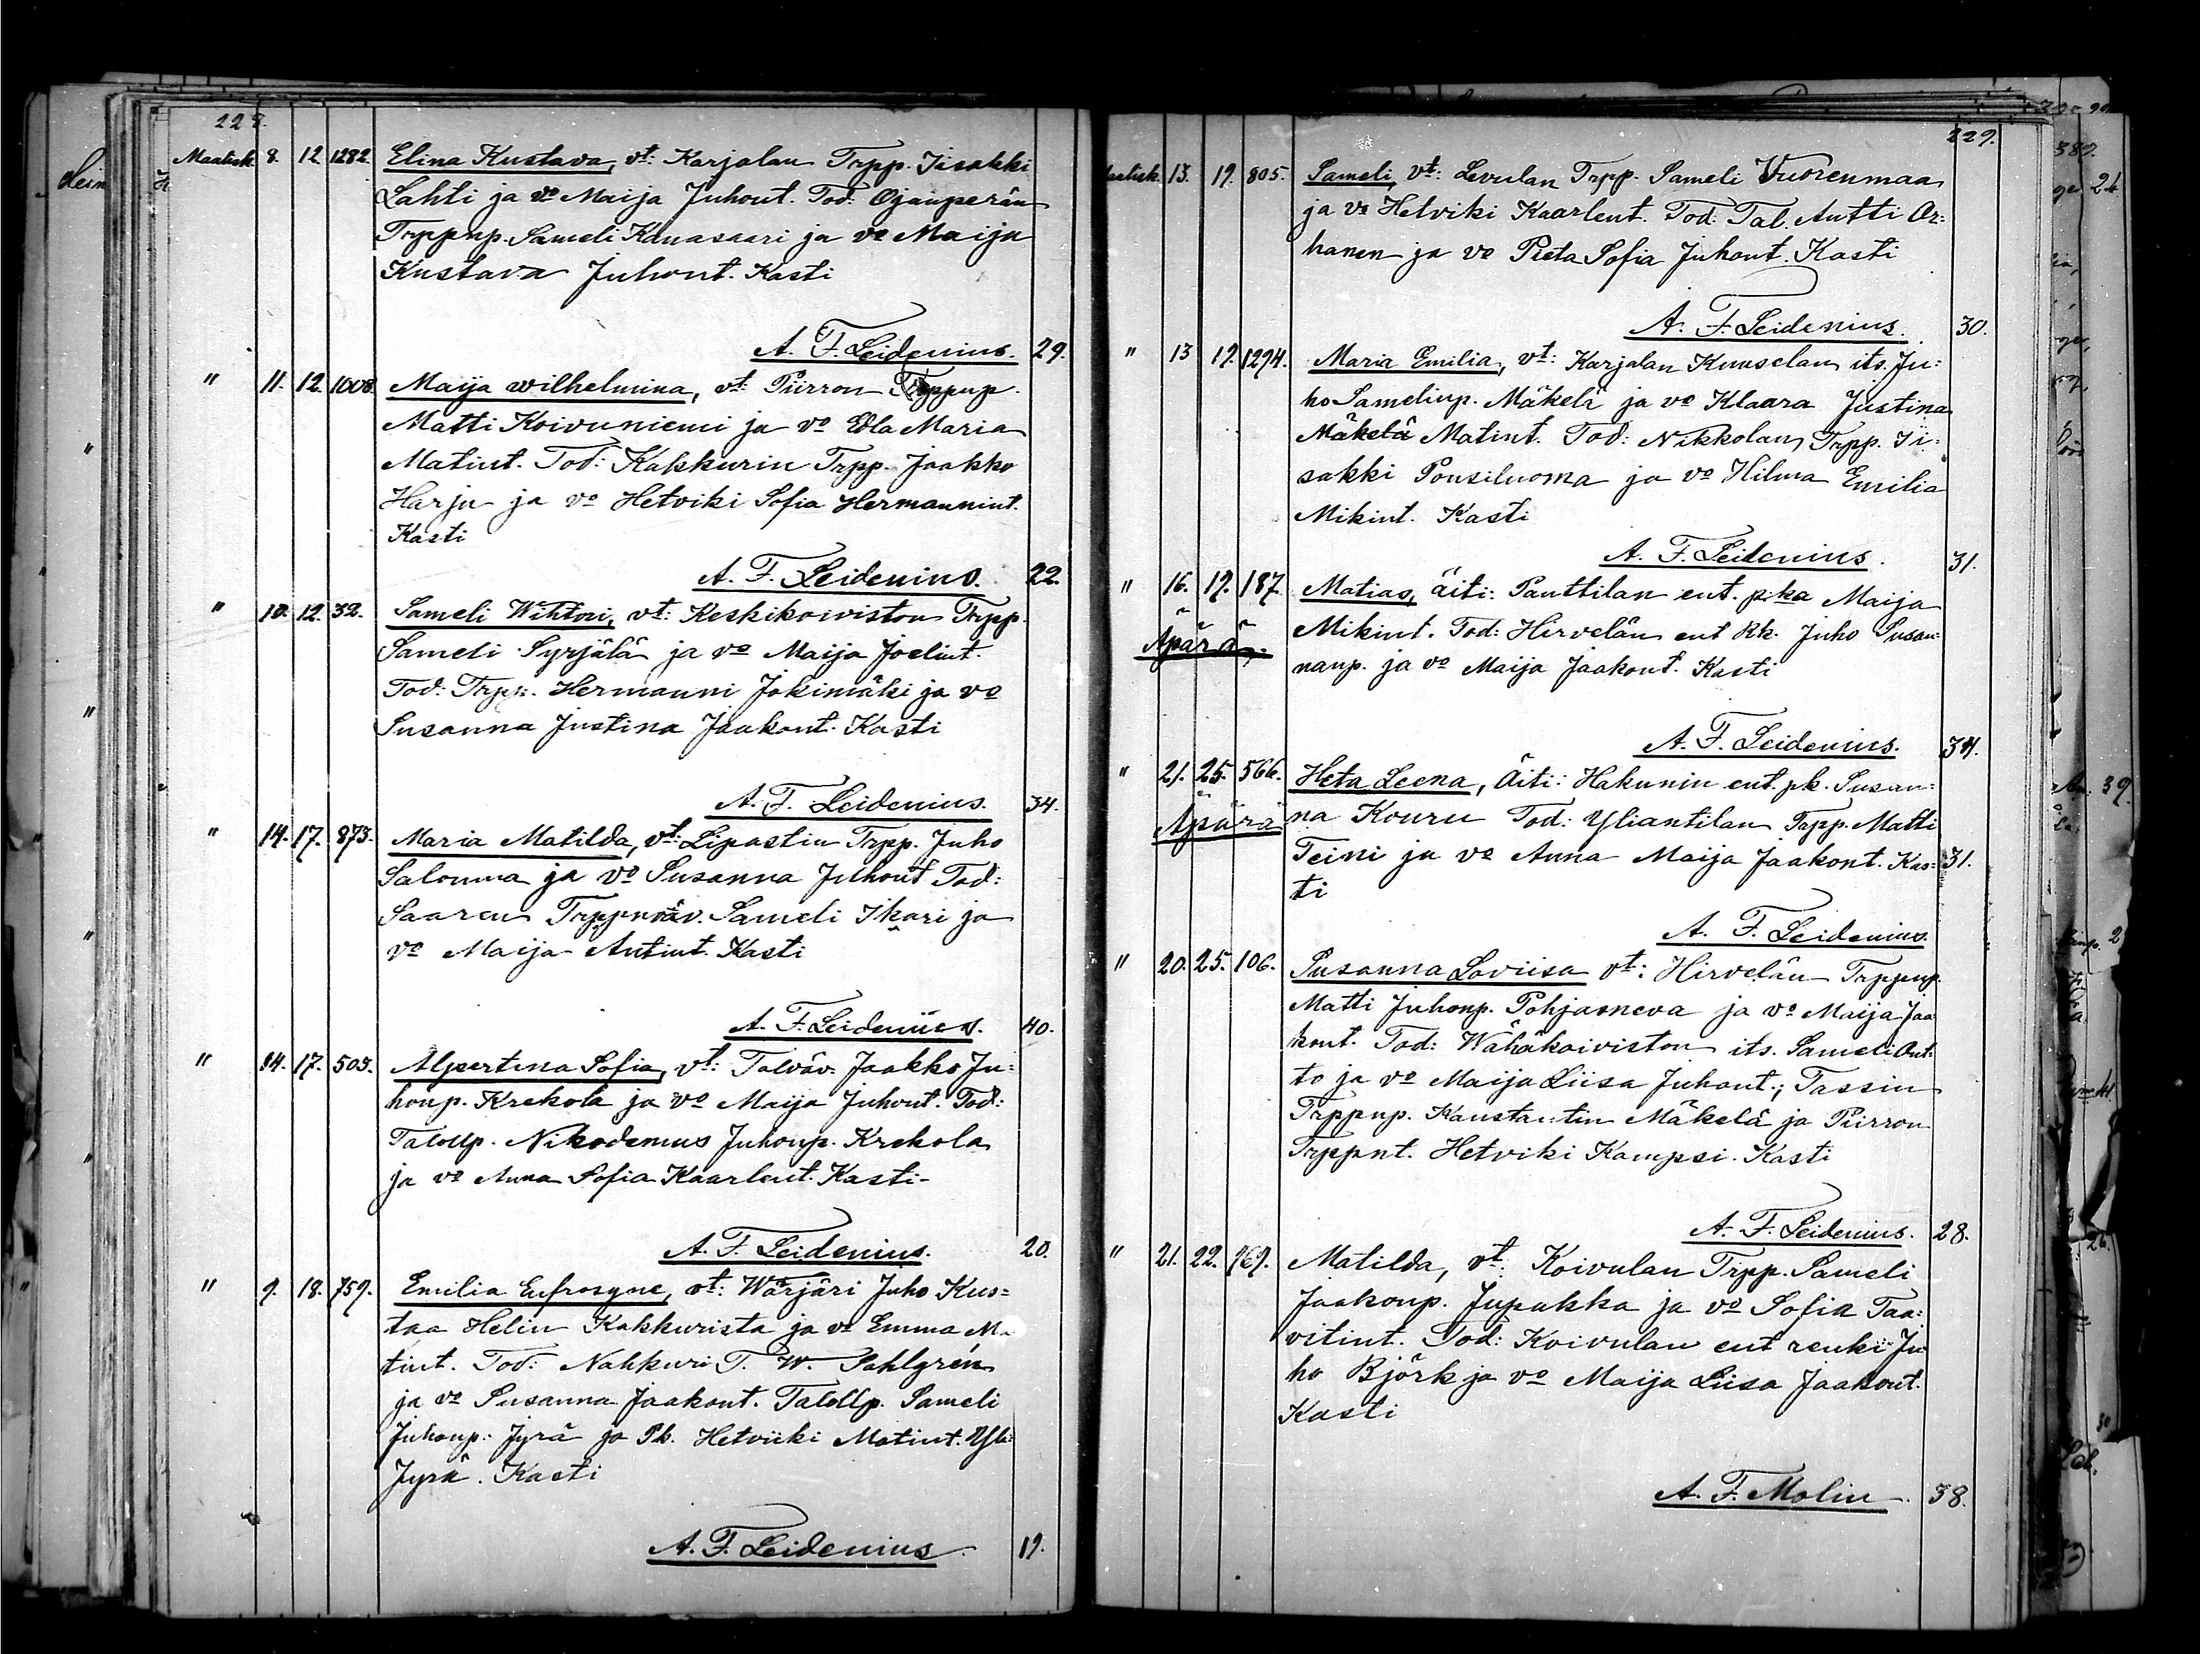 228.
Maalisk. 8. 12. 1282. Elina Kustava, vt: Karjalan Trpp. Iisakki
Lahti ja vo Maija Juhont. Tod: Ojanperän
Trppnp. Sameli Kanasaari ja vo Maija
Kustava Juhont. Kasti
A. F. Leidenius. 29.
" 11. 12. 1008. Maija Wilhelmina, vt: Piirron Trppnp.
Matti Koivuniemi ja vo Edla Maria
Matint. Tod: Kakkurin Trpp. Jaakko
Harju ja vo Hetviki Sofia Hermannint.
Kasti
A. F. Leidenius. 22.
" 10. 12. 32. Sameli Wihtori, vt: Keskikoiviston Trpp.
Sameli Syrjälä ja vo Maija Joelint.
Tod: Trpp. Hermanni Jokimäki ja vo
Susanna Justina Jaakont. Kasti
A. F. Leidenius. 34.
" 14. 17. 873. Maria Matilda, vt: Lipastin Trpp. Juho
Salonma ja vo Susanna Juhont Tod:
Saaren Trppnäv. Sameli Ikari ja
vo Maija Antint. Kasti
A. F. Leidenius. 40.
" 14. 17. 503. Alpertina Sofia, vt: Talväv. Jaakko Ju=
honp. Krekola ja vo Maija Juhont. Tod:
Talollp. Nikodemus Juhonp. Krekola
ja vo Anna Sofia Kaarlent. Kasti-
A. F. Leidenius. 20.
" 9. 18. 759. Emilia Eufrosyne, vt: Wärjäri Juho Kus=
taa Helin Kakkurista ja vo Emma Ma
tint. Tod: Nahkuri T. W. Sahlgrén
ja vo Susanna Jaakont. Talollp. Sameli
Juhonp. Jyrä ja Pk. Hetviiki Matint. Yli
Jyrä. Kasti
A. F. Leidenius. 19.
229.
aalisk. 13. 19. 805. Sameli, vt: Levulan Trpp. Sameli Vuorenmaa
ja vo Hetviki Kaarlent. Tod: Tal. Antti Or:
hanen ja vo Preta Sofia Juhont. Kasti
A. F. Leidenius. 30.
" 13 19. 1294. Maria Emilia, vt: Karjalan Kuuselan its. Ju:
ho Samelinp. Mäkelä ja vo Klaara Justina
Mäkelä Matint. Tod: Nikkolan Trpp. Ii:
sakki Ponsiluoma ja vo Hilma Emilia
Mikint. Kasti
A. F. Leidenius. 31.
" 16. 19. 187. Matias, äiti: Panttilan ent. p:ka Maija
Äpärä. Mikint. Tod: Hirvelän ent Rk. Juho Susan:
nanp. ja vo Maija Jaakont. Kasti
A. F. Leidenius. 34.
" 21. 25. 566. Heta Leena, Äiti: Hakunin ent. pk. Susan:
Äpärä na Kouru Tod: Yliantilan Trpp. Matti
Teini ja vo Anna Maija Jaakont. Kas= 31.
ti
A. F. Leidenius.
" 20. 25. 106. Susanna Loviisa vt: Hirvelän Trppnp.
Matti Juhonp. Pohjasneva ja vo Maija Jaa
kont. Tod: Wähäkoiviston its. Sameli Ont:
to ja vo Maija Liisa Juhont.; Tassin
Trppnp. Kanstantin Mäkelä ja Piirron
Trppnt. Hetviki Kamppi. Kasti
A. F. Leidenius. 28.
" 21. 22. 769. Matilda, vt: Koivulan Trpp. Sameli
Jaakonp. Jupakka ja vo Sofia Taa:
vitint. Tod: Koivulan ent renki Ju
ho Björk ja vo Maija Liisa Jaakont.
Kasti
A. F. Molin. 38.